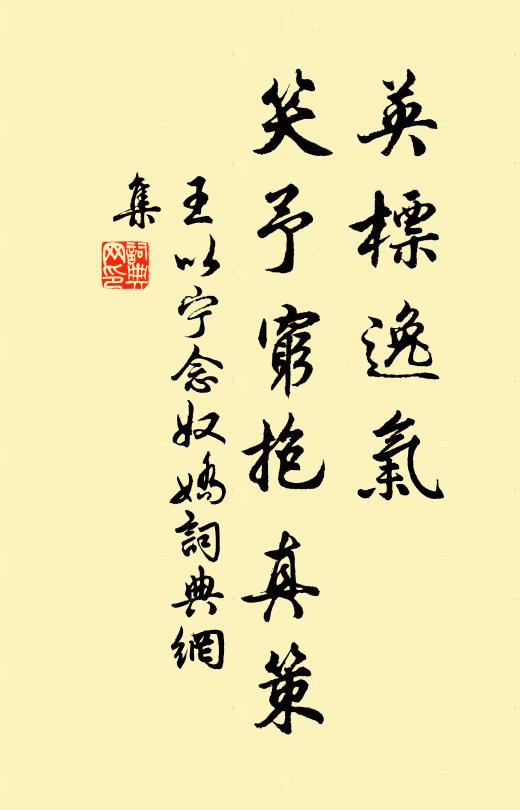 英標逸氣
笑予窮抱真策
王以宁念奴嬌詞典網
集
詞典
网印